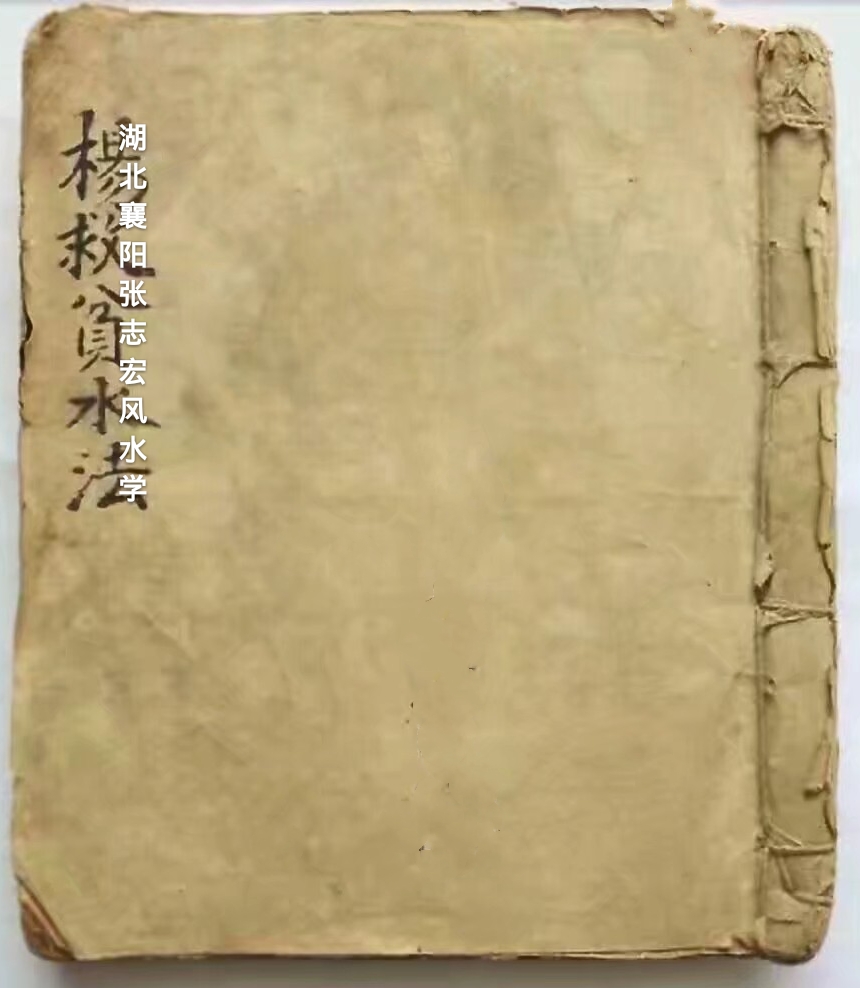 楊救貧水法
湖北襄阳张志宏风水学